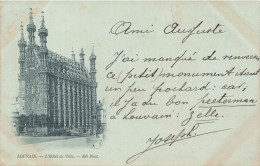 Ami Auguste
J'ai manqué de renverser
ce petit monument étant
un peu pochard: car,
il y a du bon peeterman
à Louvain: Zelle.
Joseph
LOUVAIN. — L'Hôtel de Ville. — ND Phot.